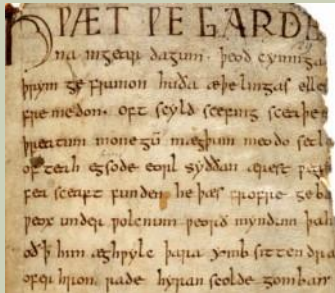 HǷÆT ǷE GARDE
na ingear dagum. þeod cyninga
þrym ge frunon huða æþelingas elle
fre medon. oft scyld scefing sceaþe
þreatum monegū mægþum meodo setl
of teah egsode eorl syððan ærest ƿea
fea sceaft funden he þæs frofre geba
ƿeox under ƿolcnum ƿeorð myndum þah
oð ꝥ him æghƿylc þara ymb sittendra
ofer hron rade hyran scolde gomban